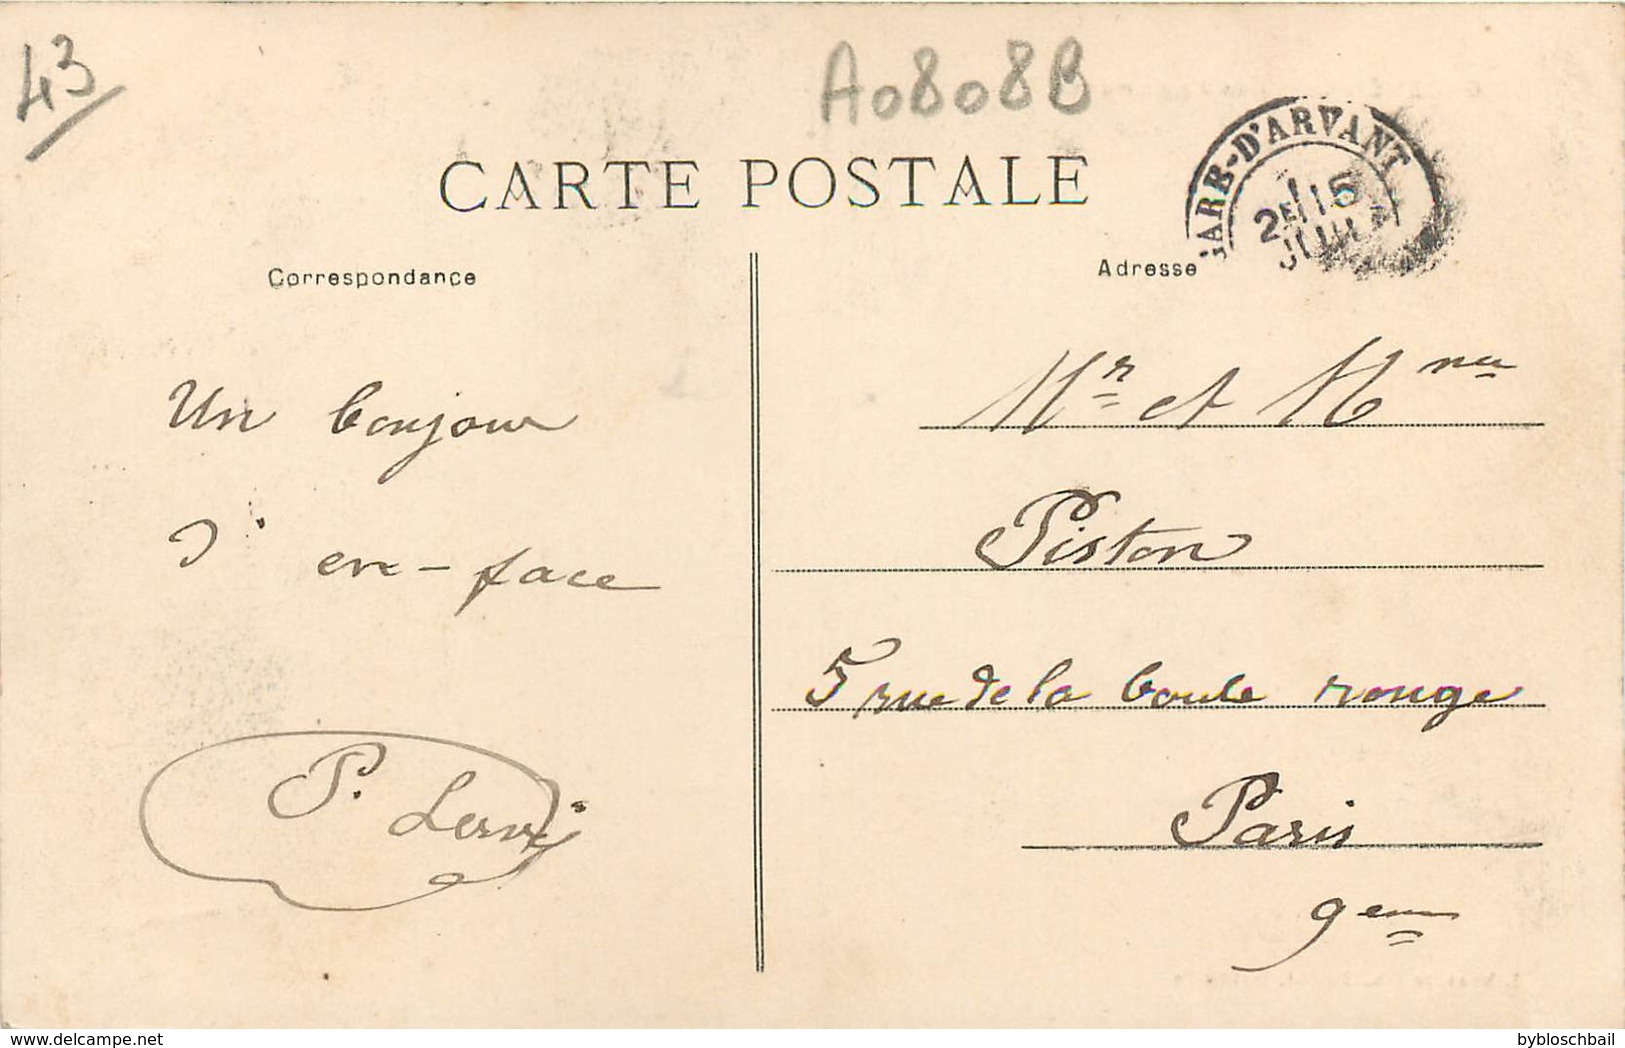 43
A0808B
CARTE POSTALE
GARE-D'ARVANT
2E 15
JUIL
Correspondance
Adresse
Un bonjour
d'en-face
P.
Mr et Mme
Piston
5 rue de la boule rouge
Paris
9eme
delcampe.net
bybloschbail